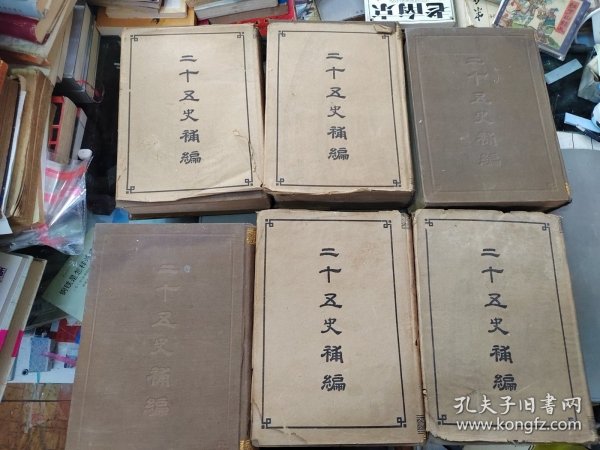 老南京
二十五史補編
二十五史補編
二十五史補編
二十五史補編
二十五史補編
二十五史補編
钢铁是怎样
孔夫子旧书网
www.kongfz.com